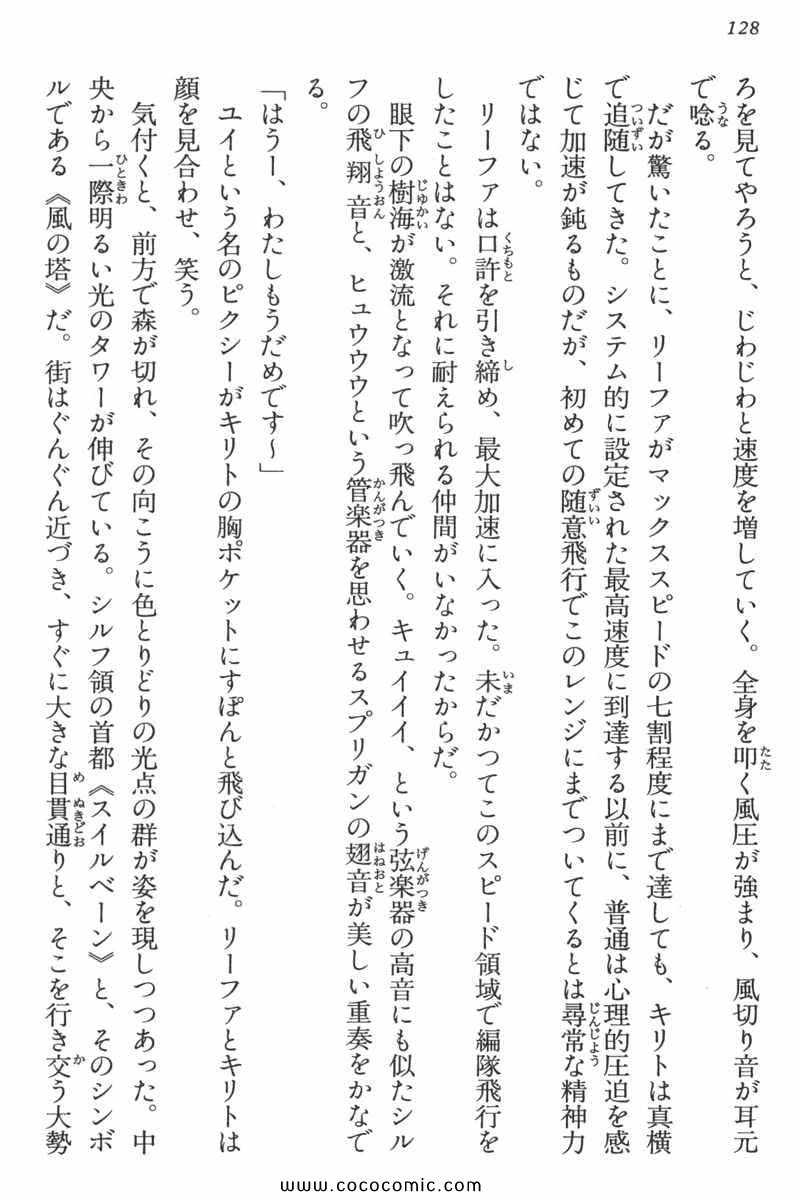 128
ろを見てやろうと、じわじわと速度を増していく。全身を叩く風圧が強まり、風切り音が耳元
で唸る。
だが驚いたことに、リーファがマックススピードの七割程度にまで達しても、キリトは真横
で追随してきた。システム的に設定された最高速度に到達する以前に、普通は心理的圧迫を感
じて加速が鈍るものだが、初めての随意飛行でこのレンジにまでついてくるとは尋常な精神力
ではない。
リーファは口許を引き締め、最大加速に入った。未だかつてこのスピード領域で編隊飛行を
したことはない。それに耐えられる仲間がいなかったからだ。
眼下の樹海が激流となって吹っ飛んでいく。キュイイイ、という弦楽器の高音にも似たシル
フの飛翔音と、ヒュウウウという管楽器を思わせるスプリガンの翅音が美しい重奏をかなで
る。
「はうー、わたしもうだめです～」
ユイという名のピクシーがキリトの胸ポケットにすぽんと飛び込んだ。リーファとキリトは
顔を見合わせ、笑う。
気付くと、前方で森が切れ、その向こうに色とりどりの光点の群が姿を現しつつあった。中
央から一際明るい光のタワーが伸びている。シルフ領の首都《スイルベーン》と、そのシンボ
ルである《風の塔》だ。街はぐんぐん近づき、すぐに大きな目貫通りと、そこを行き交う大勢
www.cococomic.com